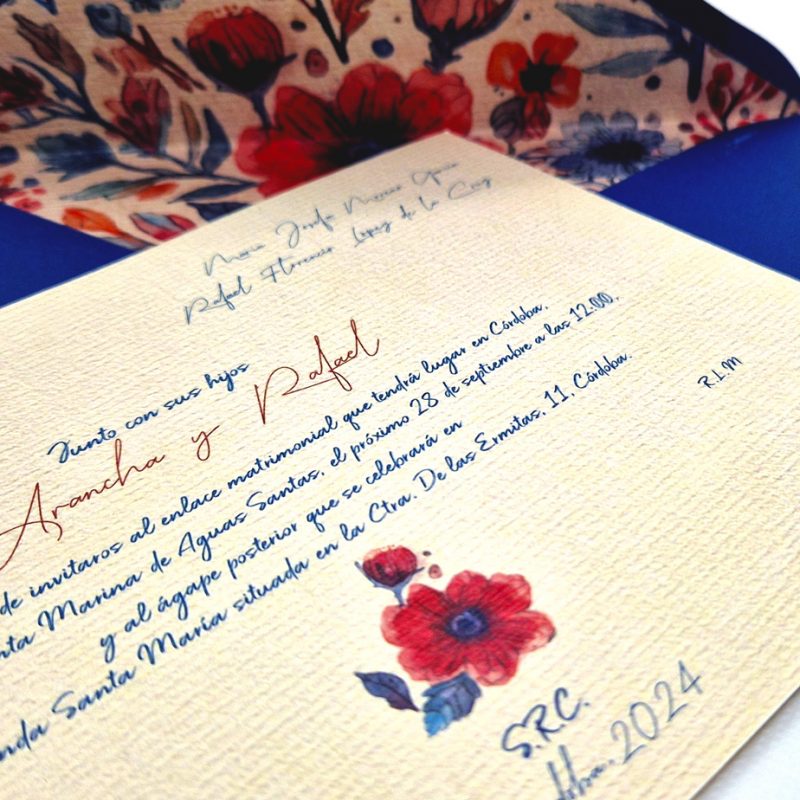 María Josefa Moreno García
Rafael Florencio López de la Cruz
Junto con sus hijos
Arancha y Rafael
de invitaros al enlace matrimonial que tendrá lugar en Córdoba,
Marina de Aguas Santas, el próximo 28 de septiembre a las 12.00,
y al ágape posterior que se celebrará en
Santa María situada en la Ctra. De las Ermitas, 11, Córdoba.
R.L.M
S.R.C.
2024